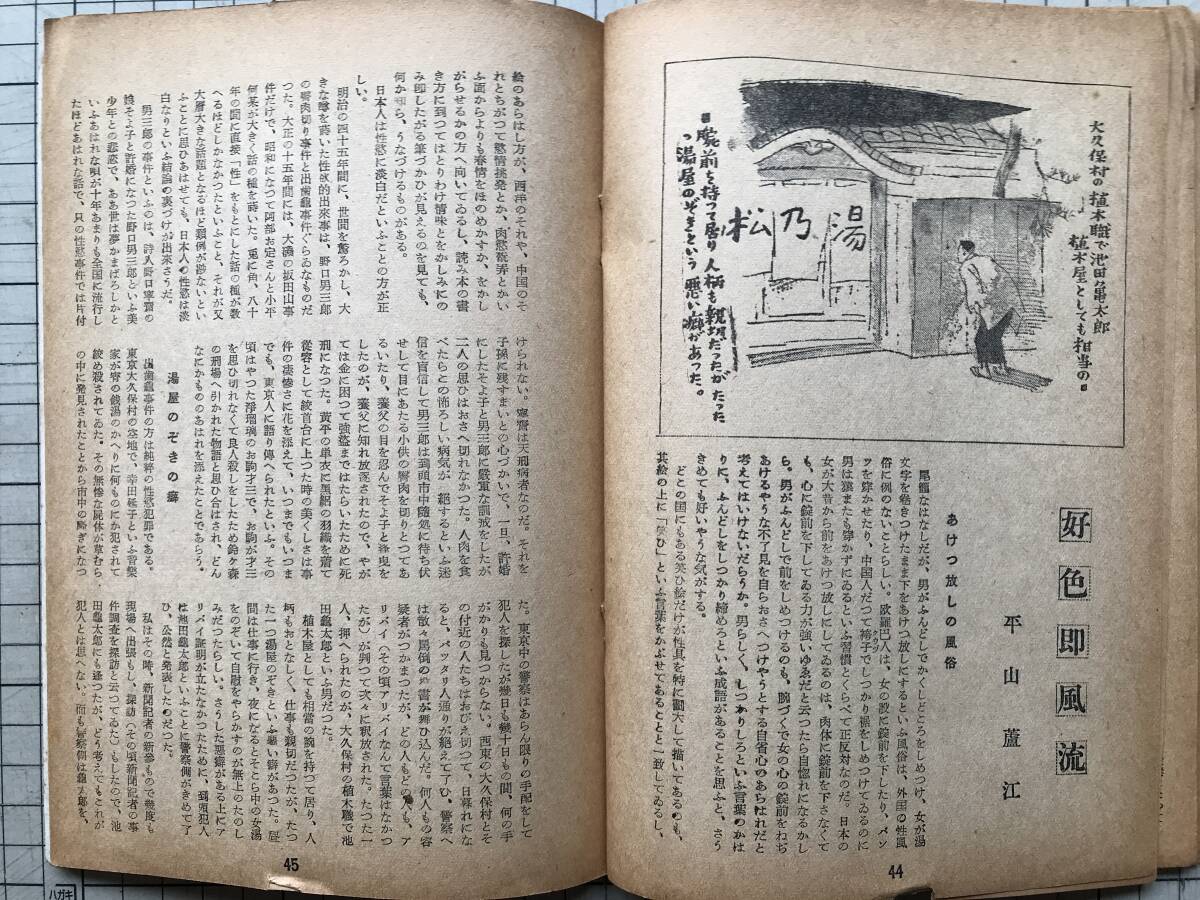 大久保村の植木職で池田亀太郎
植木屋としても相当の
腕前を持つて居り人柄も親切だったがたった
一つ湯屋のぞきという悪い癖があった。
湯乃松
好色即風流
平山蘆江
あけつ放しの風俗
尾籠なはなしだが、男がふんどしでかくしどころをしめつけ、女が湯
文字を巻きつけたまま下をあけつ放しにするといふ風俗は、外国の性風
俗に例のないことらしい。欧羅巴人は、女の股に錠前を下したり、パン
ツを穿かせたり、中国人だつて袴子でしつかり裾をしめつけてゐるのに
男は猿またも穿かずにゐるといふ習慣とくらべて正反対なのだ。日本の
女が大昔から前をあけつ放しにしてゐるのは、肉体に錠前を下さなくて
も、心に錠前を下してゐる力が強いゆゑだと云つたら自惚れになるかし
ら。男がふんどしで前をしめつけるのも、腕づくで女の心の錠前をねぢ
あけるやうな不了見を自らおさへつけやうとする自省心のあらはれだと
考へてはいけないだらうか。男らしく、しつかりしろといふ言葉のかは
りに、ふんどしをしつかり締めろといふ成語があることを思ふと、さう
きめても好いやうな気がする。
どこの国にもある笑ひ絵だけが性具を特に観大して描いてあるのも、
其絵の上に「笑ひ」といふ言葉をかぶせてあることと一致してゐるし、
44
絵のあらはし方が、西洋のそれや、中国のそ
れとちがつて慾情挑発とか、肉慾翫弄とかい
ふ面からよりも春情をほのめかすか、をかし
がらせるかの方へ向いてゐるし、読み本の書
き方に到つてはとりわけ情味とかしみにの
み即したがる筆づかひが見えるのを見ても、
何か知ら、うなづけるものがある。
日本人は性慾に淡白だといふことの方が正
しい。
明治の四十五年間に、世間を驚ろかし、大
きな噂を蒔いた性慾的出来事は、野口男三郎
の臀肉切り事件と出歯亀事件ぐらゐなものだ
つた。大正の十五年間には、大磯の坂田山事
件だけで、昭和になつて阿部お定さんと小平
何某が大きく話の種を蒔いた。兎に角、八十
年の間に直接「性」をもとにした話の種が数
へるほどしかなかつたといふこと、それが又
大層大きな話題となるほど類例が尠ないとい
ふことに思ひあはせても、日本人の性慾は淡
白なりといふ結論の裏づけが出来さうだ。
男三郎の事件といふのは、詩人野口寧齋の
娘そよ子と許婚になつた野口男三郎といふ美
少年との悲恋で、ああ世は夢かまぼろしかと
いふあはれな唄が十年あまりも全国に流行し
たほどあはれな話で、只の性慾事件では片付
けられない。寧齋は天刑病者なのだ。それを
子孫に残すまいとの心づかいで、一旦、許婚
にしたそよ子と男三郎に厳重な訓戒をしたが
二人の思ひはおさへ切れなかつた。人肉を食
べたらこの怖ろしい病気が一掃するといふ迷
信を盲信して男三郎は到頭市中随処に待ち伏
せして目にあたる小供の臀肉を切りとつてあ
るいたり、養父の目を忍んでそよ子と逢曳を
したのが、養父に知れ放逐されたので、やが
ては金に困つて強盗まではたらいたために死
刑になつた。黄平の単衣に黒絽の羽織を着て
従容として絞首台に上つた時の美くしさは事
件の凄惨さに花を添えて、いつまでもいつま
でも、東京人に語り傳へられたといふ。その
頃はやつた浄瑠璃のお駒才三で、お駒が才三
を思ひ切れなくて良人殺しをしたため鈴ヶ森
の刑場へ引かれた物語と思ひ合はされ、どん
なにかもののあはれを添えたことであらう。
湯屋のぞきの癖
出歯亀事件の方は純粋の性慾犯罪である。
東京大久保村の空地で、幸田延子といふ音楽
家が宵の銭湯のかへりに何ものにか犯されて
絞め殺されてゐた。その無惨な屍体が草むら
の中に発見されたことから市中の騒ぎになつ
た。東京中の警察はあらん限りの手配をして
犯人を探したが幾日も幾十日もの間、何の手
がかりも見つからない。西東の大久保村とそ
の付近の人たちはおびえ切つて、日暮れにな
ると、パッタリ人通りが絶えて了ひ、警察へ
は散々罵倒の書が舞ひ込んだ。何人もの容
疑者がつかまつたが、どの人もどの人も、ア
リバイ（その頃アリバイなんて言葉はなかつ
たが）が判つて次々に釈放された。たつた一
人、押へられたのが、大久保村の植木職で池
田龜太郎といふ男だつた。
植木屋としても相当の腕を持つて居り、人
柄もおとなしく、仕事も親切だつたが、たつ
た一つ湯屋のぞきといふ悪い癖があつた。昼
間は仕事に行き、夜になるとそこら中の女湯
をのぞいて自慰をやらかすのが無上のたのし
みだつたらしい。さうした悪癖がある上にア
リバイ証明が立たなかつたために、到頭犯人
は池田龜太郎といふことに警察側がきめて了
ひ、公然と発表したのだつた。
私はその時、新聞記者の新参もので幾度も
現場へ出張もし、探訪（その頃新聞記者の事
件調査を探訪と云つてゐた）もしたので、池
田龜太郎にも逢つたが、どう考えてもこれが
犯人とは思へない。而も警察側は龜太郎を、
45
ハガキ